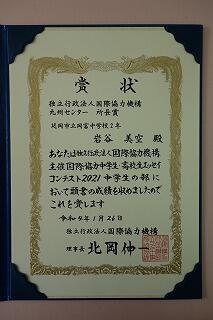 賞状
独立行政法人国際協力機構
九州センター 所長賞
延岡市立岡富中学校2年
岩谷 美空 殿
あなたは独立行政法人国際協力機構
主催「国際協力中学生・高校生エッセイ
コンテスト2021」中学生の部に
おいて頭書の成績を収めましたので
これを賞します
令和4年1月26日
独立行政法人国際協力機構
理事長 北岡伸一